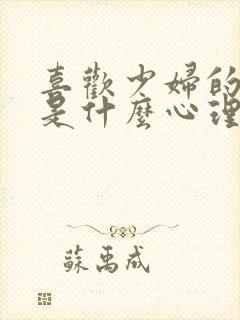 喜歡少婦的
是什麼心理
蘇禹成